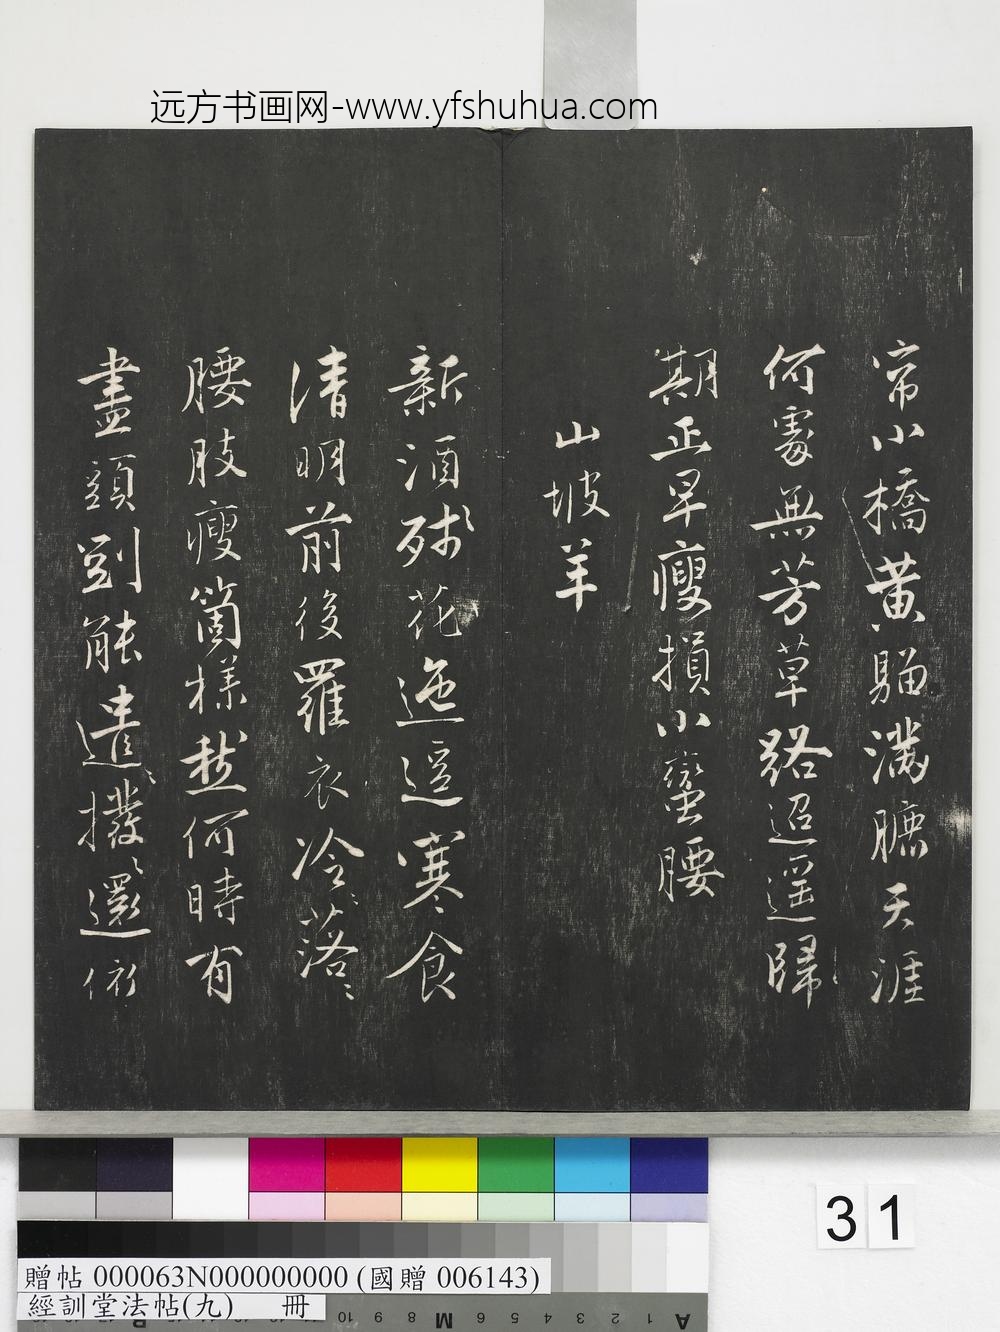 远方书画网-www.yfshuhua.com
帘小橋黃貓灑臕天涯
何處無芳草路迢遥歸
期正早瘦損小蠻腰
山坡羊
新酒殘花迤逗寒食
清明前後羅衣冷落
腰肢瘦箇樣愁何時有
盡頭到能遣撥還依
31
贈帖 000063N000000000 (國贈 006143)
經訓堂法帖(九) 冊